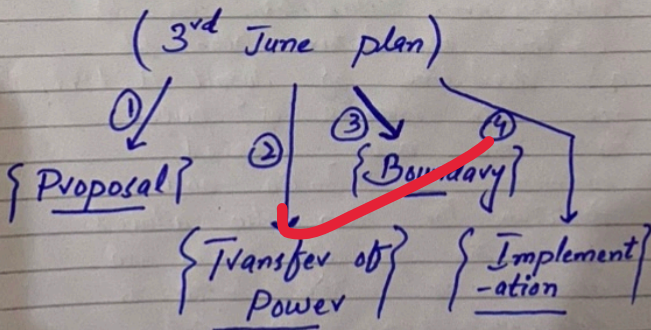 (3rd June plan)
① ② ③ ④
{Proposal}
{Boundary}
{Transfer of
Power}
{Implement
-ation}